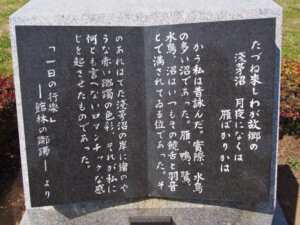 たづね来しわが故郷の
浅茅沼 月夜になくは
雁ばかりかは
かう私は昔詠んだ。實際、水鳥
の多い沼であつた。雁、鴨、鷺、
水鳥、沼はいつもその饒舌と羽音
とで満されてゐる位であつた。そ
のあれはてた浅茅沼の岸に燴のや
うな赤い躑躅の色彩、それが私に
何とも言へないロマンチックな感
じを起させたものであつた。
「一日の行楽」
―舘林の躑躅―より